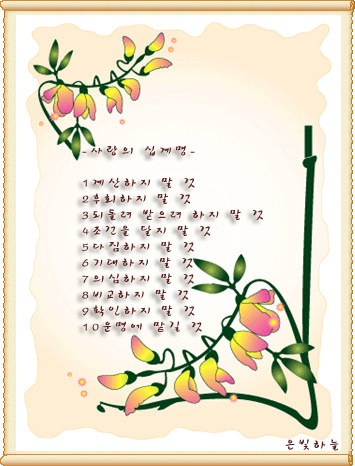 -사랑의 십계명-
1계산하지 말 것
2후회하지 말 것
3되돌려 받으려 하지 말 것
4조건을 달지 말 것
5다짐하지 말 것
6기대하지 말 것
7의심하지 말 것
8비교하지 말 것
9확인하지 말 것
10운명에 맡길 것
은빛하늘